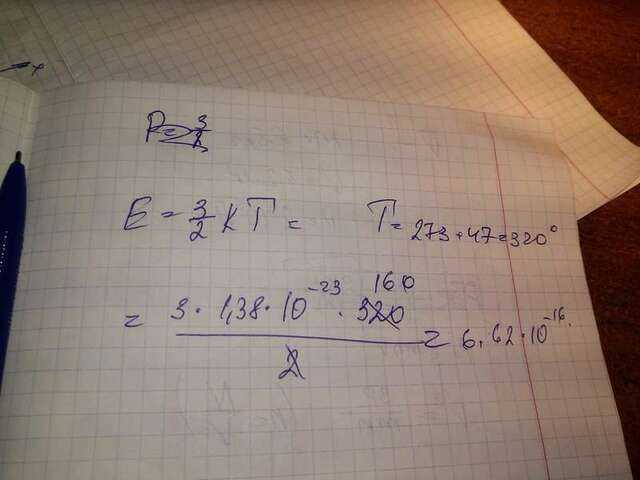 P = 3/2
E = 3/2 KT = T = 273 + 47 = 320°
= 3 · 1,38 · 10^-23 · 320 160 / 2 = 6,62 · 10^-16.